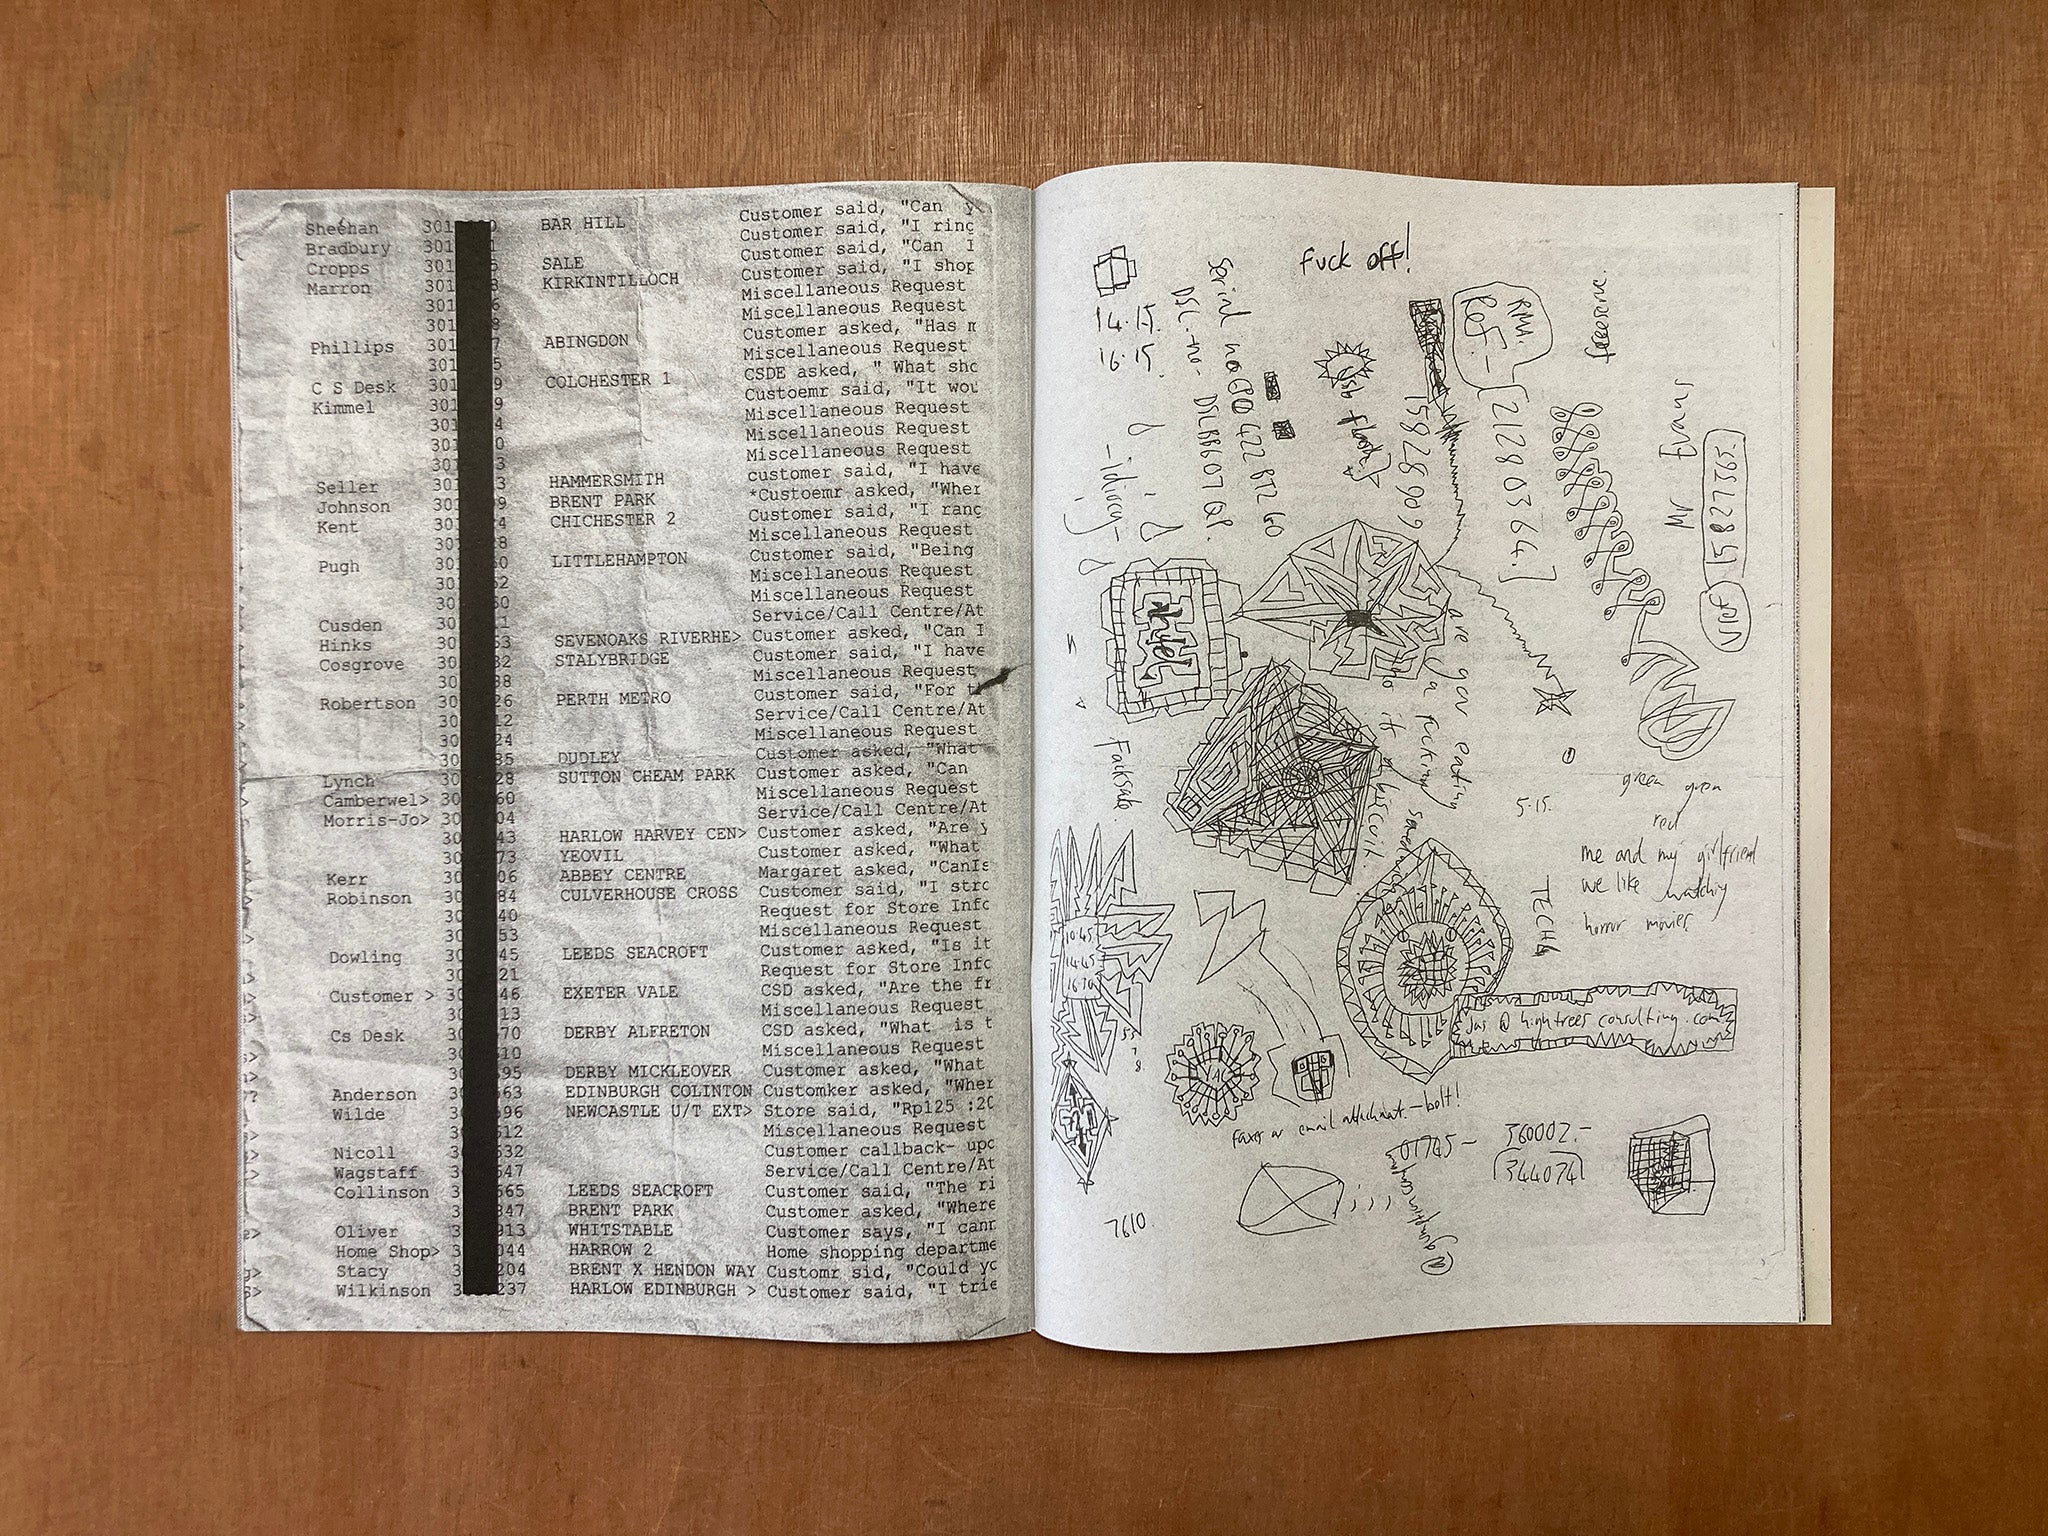 Sheehan 301 0 BAR HILL Customer said, "Can y
Bradbury 301 1 Customer said, "I ring
Cropps 301 5 SALE Customer said, "Can I
Marron 301 8 KIRKINTILLOCH Customer said, "I shop
301 6 Miscellaneous Request
301 8 Miscellaneous Request
Phillips 301 7 ABINGDON Customer asked, "Has m
301 5 Miscellaneous Request
C S Desk 301 9 COLCHESTER 1 CSDE asked, " What sho
Kimmel 301 9 Custoemr said, "It wou
301 4 Miscellaneous Request
301 0 Miscellaneous Request
301 3 Miscellaneous Request
Seller 301 3 HAMMERSMITH customer said, "I have
Johnson 301 39 BRENT PARK *Custoemr asked, "Wher
Kent 301 24 CHICHESTER 2 Customer said, "I rang
30 28 Miscellaneous Request
Pugh 301 50 LITTLEHAMPTON Customer said, "Being
30 52 Miscellaneous Request
30 60 Miscellaneous Request
Cusden 30 11 Service/Call Centre/At
Hinks 30 53 SEVENOAKS RIVERHE> Customer asked, "Can I
Cosgrove 30 82 STALYBRIDGE Customer said, "I have
30 98 Miscellaneous Request
Robertson 30 26 PERTH METRO Customer said, "For t
30 12 Service/Call Centre/At
30 24 Miscellaneous Request
30 85 DUDLEY Customer asked, "What
Lynch 30 28 SUTTON CHEAM PARK Customer asked, "Can
Camberwel> 30 60 Miscellaneous Request
Morris-Jo> 30 04 Service/Call Centre/At
30 43 HARLOW HARVEY CEN> Customer asked, "Are y
30 73 YEOVIL Customer asked, "What
Kerr 30 06 ABBEY CENTRE Margaret asked, "CanIs
Robinson 30 84 CULVERHOUSE CROSS Customer said, "I stro
30 40 Request for Store Info
30 53 Miscellaneous Request
Dowling 30 45 LEEDS SEACROFT Customer asked, "Is it
30 21 Request for Store Info
Customer > 30 46 EXETER VALE CSD asked, "Are the fr
30 13 Miscellaneous Request
Cs Desk 30 70 DERBY ALFRETON CSD asked, "What is t
30 510 Miscellaneous Request
30 595 DERBY MICKLEOVER Customer asked, "What
Anderson 30 563 EDINBURGH COLINTON Customker asked, "Wher
Wilde 30 596 NEWCASTLE U/T EXT> Store said, "Rp125 :20
30 612 Miscellaneous Request
Nicoll 30 632 Customer callback- upd
Wagstaff 30 647 Service/Call Centre/At
Collinson 30 665 LEEDS SEACROFT Customer said, "The ri
3 847 BRENT PARK Customer asked, "Where
Oliver 3 913 WHITSTABLE Customer says, "I cann
Home Shop> 3 044 HARROW 2 Home shopping departme
Stacy 3 204 BRENT X HENDON WAY Customr sid, "Could yo
Wilkinson 3 237 HARLOW EDINBURGH > Customer said, "I trie
Fuck off!
14.15.
16.15.
Serial no
-idiocy-
RMA.
Ref. - [21280364.]
15828909
freeserve.
Mr Evans
15827365.
are you eating
ya fucking
biscuit
5.15.
green green
red
me and my girlfriend
we like watching
horror movies.
TECH
10.45
14.45
16.30
jas @ hightrees consulting.com
faxes or email attachment.-bolt!
01745- 360002.-
344074
7610.